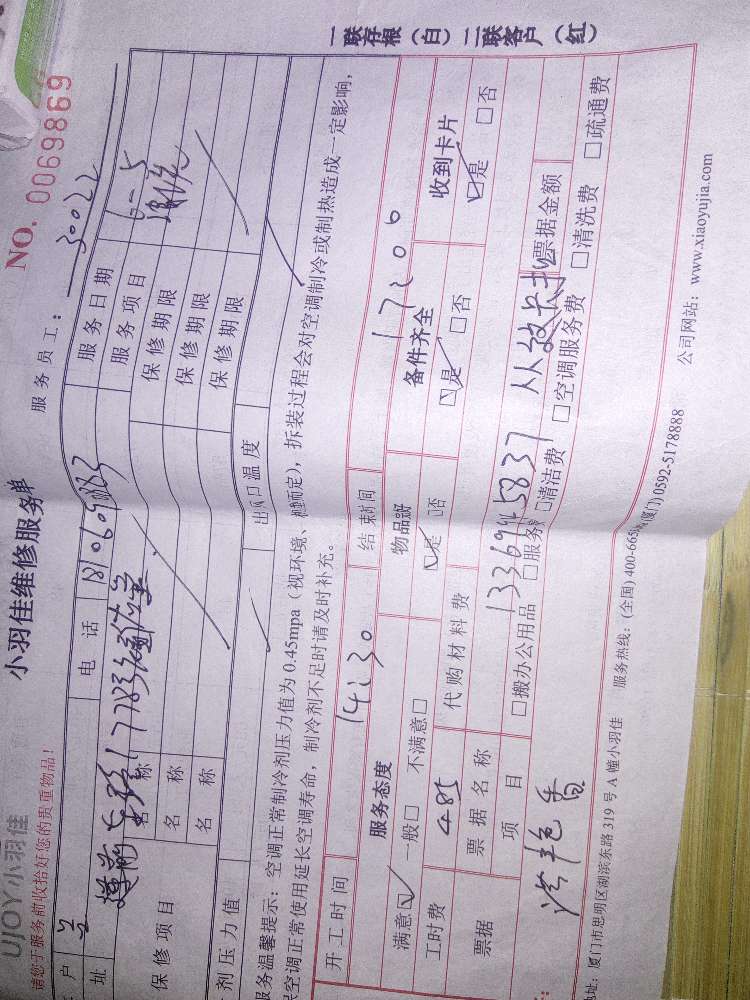 UJOY小羽佳 小羽佳维修服务单 NO. 0069869
请您于服务前收拾好您的贵重物品! 服 务 员 工: 30022
户 电 话 服 务 日 期 6-5
址 服 务 项 目
保 修 项 目 名 称 保 修 期 限
名 称 保 修 期 限
名 称 保 修 期 限
剂 压 力 值 出风口温度
服务温馨提示:空调正常制冷剂压力值为 0.45mpa(视环境、 而定),拆装过程会对空调制冷或制热造成一定影响,
空调正常使用延长空调寿命,制冷剂不足时请及时补充。
开 工 时 间 14:30 结 束 时 间 17:00
服务态度 物品 备件齐全 收到卡片
满意☑ 一般□ 不满意□ ☑是 □否 ☑是 □否 ☑是 □否
工时费 485 代 购 材 料 费
票据 票 据 名 称 13369 5837 票据金额
项 目 □搬办公用品 □服务 □清洁费 □空调服务费 □清洗费 □疏通费
地址:厦门市思明区湖滨东路 319 号 A 幢小羽佳 服务热线:(全国) 400-665 (厦门) 0592-5178888 公司网站:www.xiaoyujia.com
一联存根(白)二联客户(红)